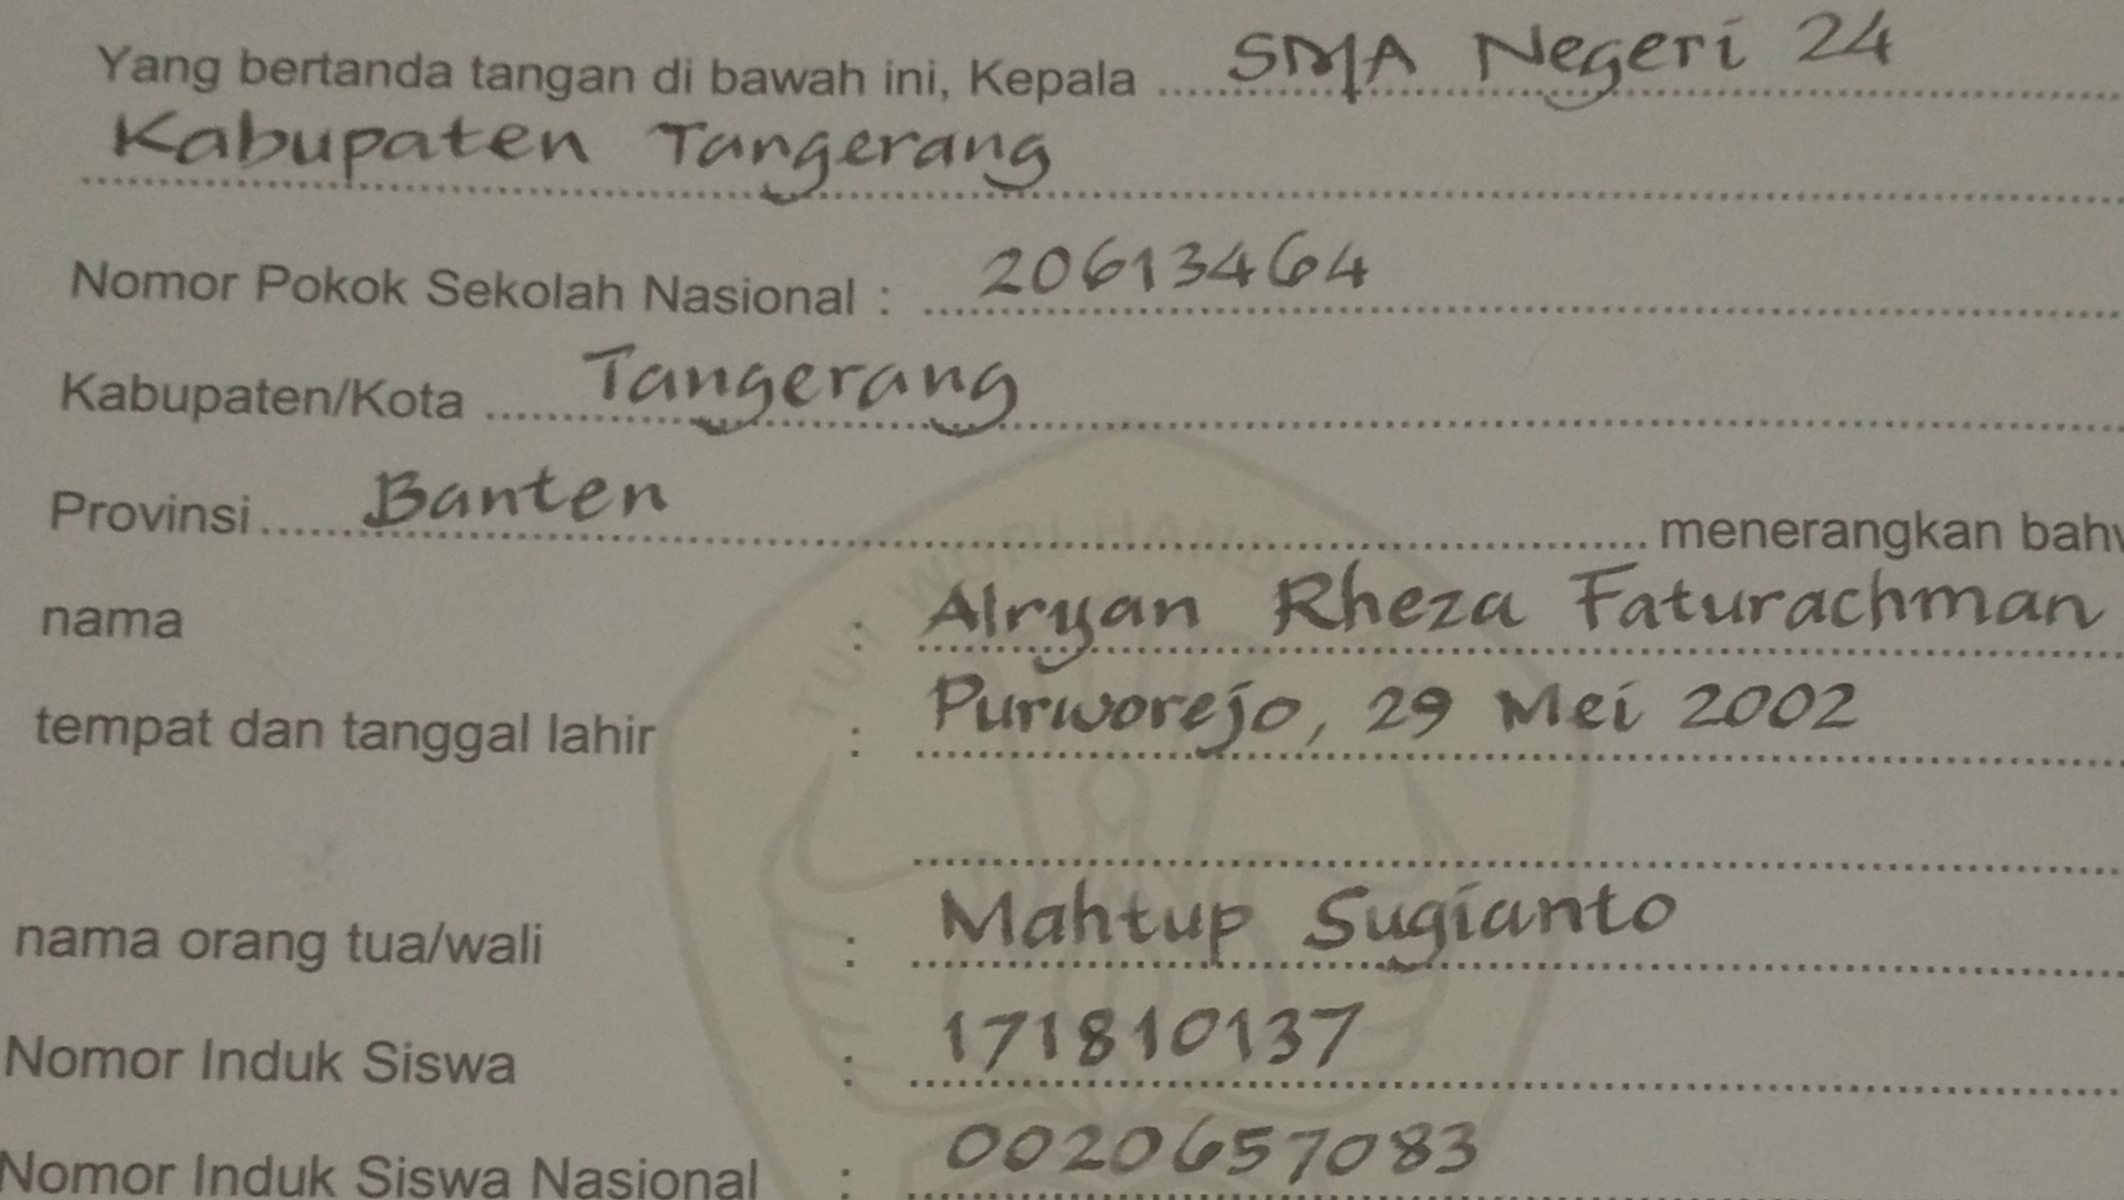 Yang bertanda tangan di bawah ini, Kepala SMA Negeri 24
Kabupaten Tangerang
Nomor Pokok Sekolah Nasional : 20613464
Kabupaten/Kota Tangerang
Provinsi Banten menerangkan bahw
nama : Alryan Rheza Faturachman
tempat dan tanggal lahir : Purworejo, 29 Mei 2002
nama orang tua/wali : Mahtup Sugianto
Nomor Induk Siswa : 171810137
Nomor Induk Siswa Nasional : 0020657083